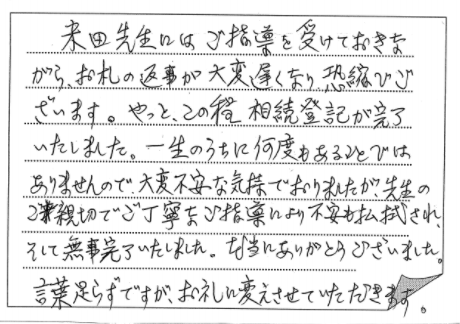 米田先生にはご指導を受けておきな
がら、お礼の返事が大変遅くなり、恐縮でご
ざいます。やっと、この程 相続登記が完了
いたしました。一生のうちに何度もあることでは
ありませんので、大変不安な気持でおりましたが、先生の
ご親切でご丁寧なご指導により不安も払拭され、
そして無事完了いたしました。本当にありがとうございました。
言葉足らずですが、お礼に変えさせていただきます。